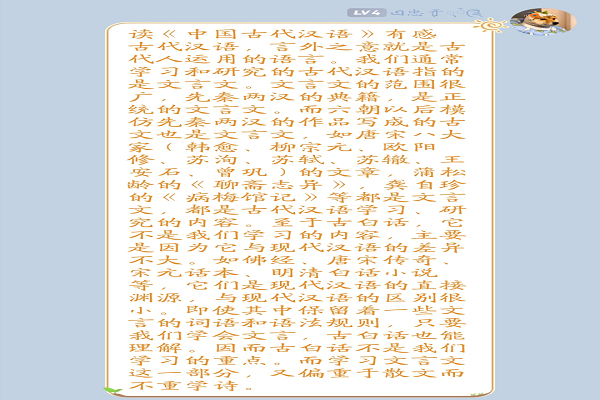 LV4
读《中国古代汉语》有感
古代汉语，言外之意就是古
代人运用的语言。我们通常
学习和研究的古代汉语指的
是文言文。文言文的范围很
广，先秦两汉的典籍，是正
统的文言文。而六朝以后模
仿先秦两汉的作品写成的古
文也是文言文，如唐宋八大
家（韩愈、柳宗元、欧阳
修、苏洵、苏轼、苏辙、王
安石、曾巩）的文章，蒲松
龄的《聊斋志异》，龚自珍
的《病梅馆记》等都是文言
文，都是古代汉语学习、研
究的内容。至于古白话，它
不是我们学习的内容，主要
是因为它与现代汉语的差异
不大。如佛经、唐宋传奇、
宋元话本、明清白话小说
等，它们是现代汉语的直接
渊源，与现代汉语的区别很
小。即使其中保留着一些文
言的词语和语法规则，只要
我们学会文言，古白话也能
理解。因而古白话不是我们
学习的重点。而学习文言文
这一部分，又偏重于散文而
不重学诗。